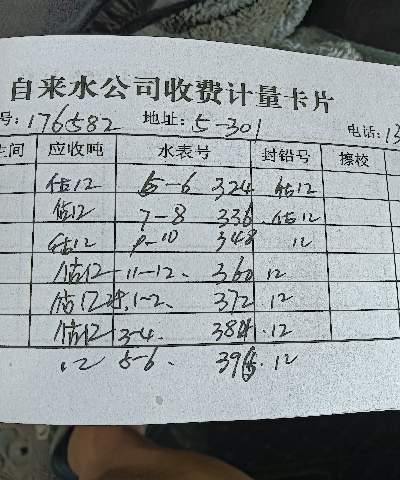 自来水公司收费计量卡片
号: 176582 地址: 5-301 电话: 13
间 应收吨 水表号 封铅号 擦校
估12 5-6 324 估12
估12 7-8 336 估12
估12 9-10 348 12
估12 11-12 360 12
估12 1-2 372 12
估12 3-4 384 12
12 5-6 396 12